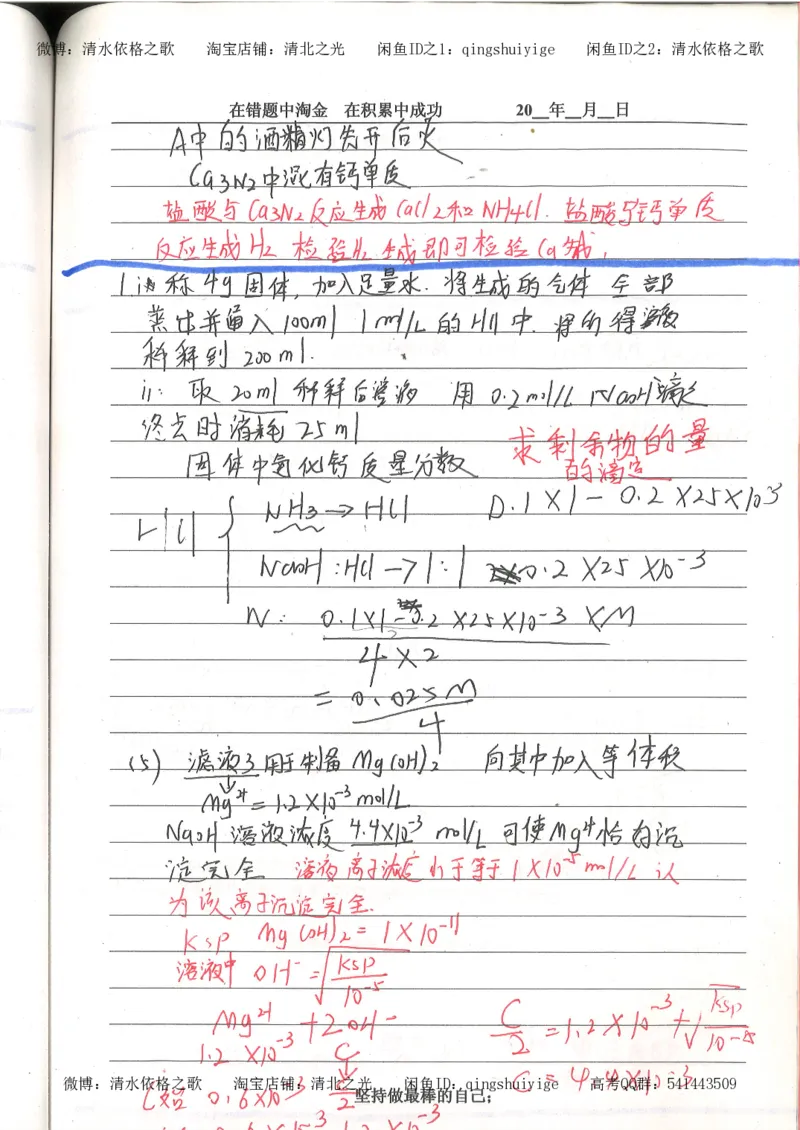 微博：清水依格之歌 淘宝店铺：清北之光 闲鱼ID之1：qingshuiyige 闲鱼ID之2：清水依格之歌
在错题中淘金 在积累中成功 20__年__月__日
A中的酒精灯先开后灭
Ca3N2中混有钙单质
盐酸与Ca3N2反应生成CaCl2和NH4Cl. 盐酸与钙单质
反应生成H2 检验H2生成即可检验Ca
1. i: 称4g固体, 加入足量水. 将生成的气体全部
蒸出并通入100ml 1mol/L的HCl中. 将所得溶液
稀释到200ml.
ii: 取20ml稀释后溶液 用0.2mol/L NaOH滴定
终点时消耗25ml
求剩余物的量
固体中氮化钙质量分数
的滴定
HCl { NH3→HCl 0.1×1-0.2×25×10-3
NaOH:HCl→1:1 0.2×25×10-3
N: 0.1×1-0.2×25×10-3×M
4×2
= 0.025M
4
(5) 滤液3用于制备Mg(OH)2 向其中加入等体积
Mg2+=1.2×10-3mol/L
NaOH溶液浓度4.4×10-3mol/L可使Mg2+恰好沉
淀完全 溶液离子浓度小于等于1×10-5mol/L认
为该离子沉淀完全.
Ksp Mg(OH)2=1×10-11
溶液中OH-=√Ksp/10-5
Mg2+ +2OH- C/2=1.2×10-3+√Ksp/10-5
1.2×10-3 C C=4.4×10-3
微博：清水依格之歌 淘宝店铺：清北之光 闲鱼ID：qingshuiyige 高考QQ群：541443509
0.6×10-3 C/2 坚持做最棒的自己；
1.2×10-3